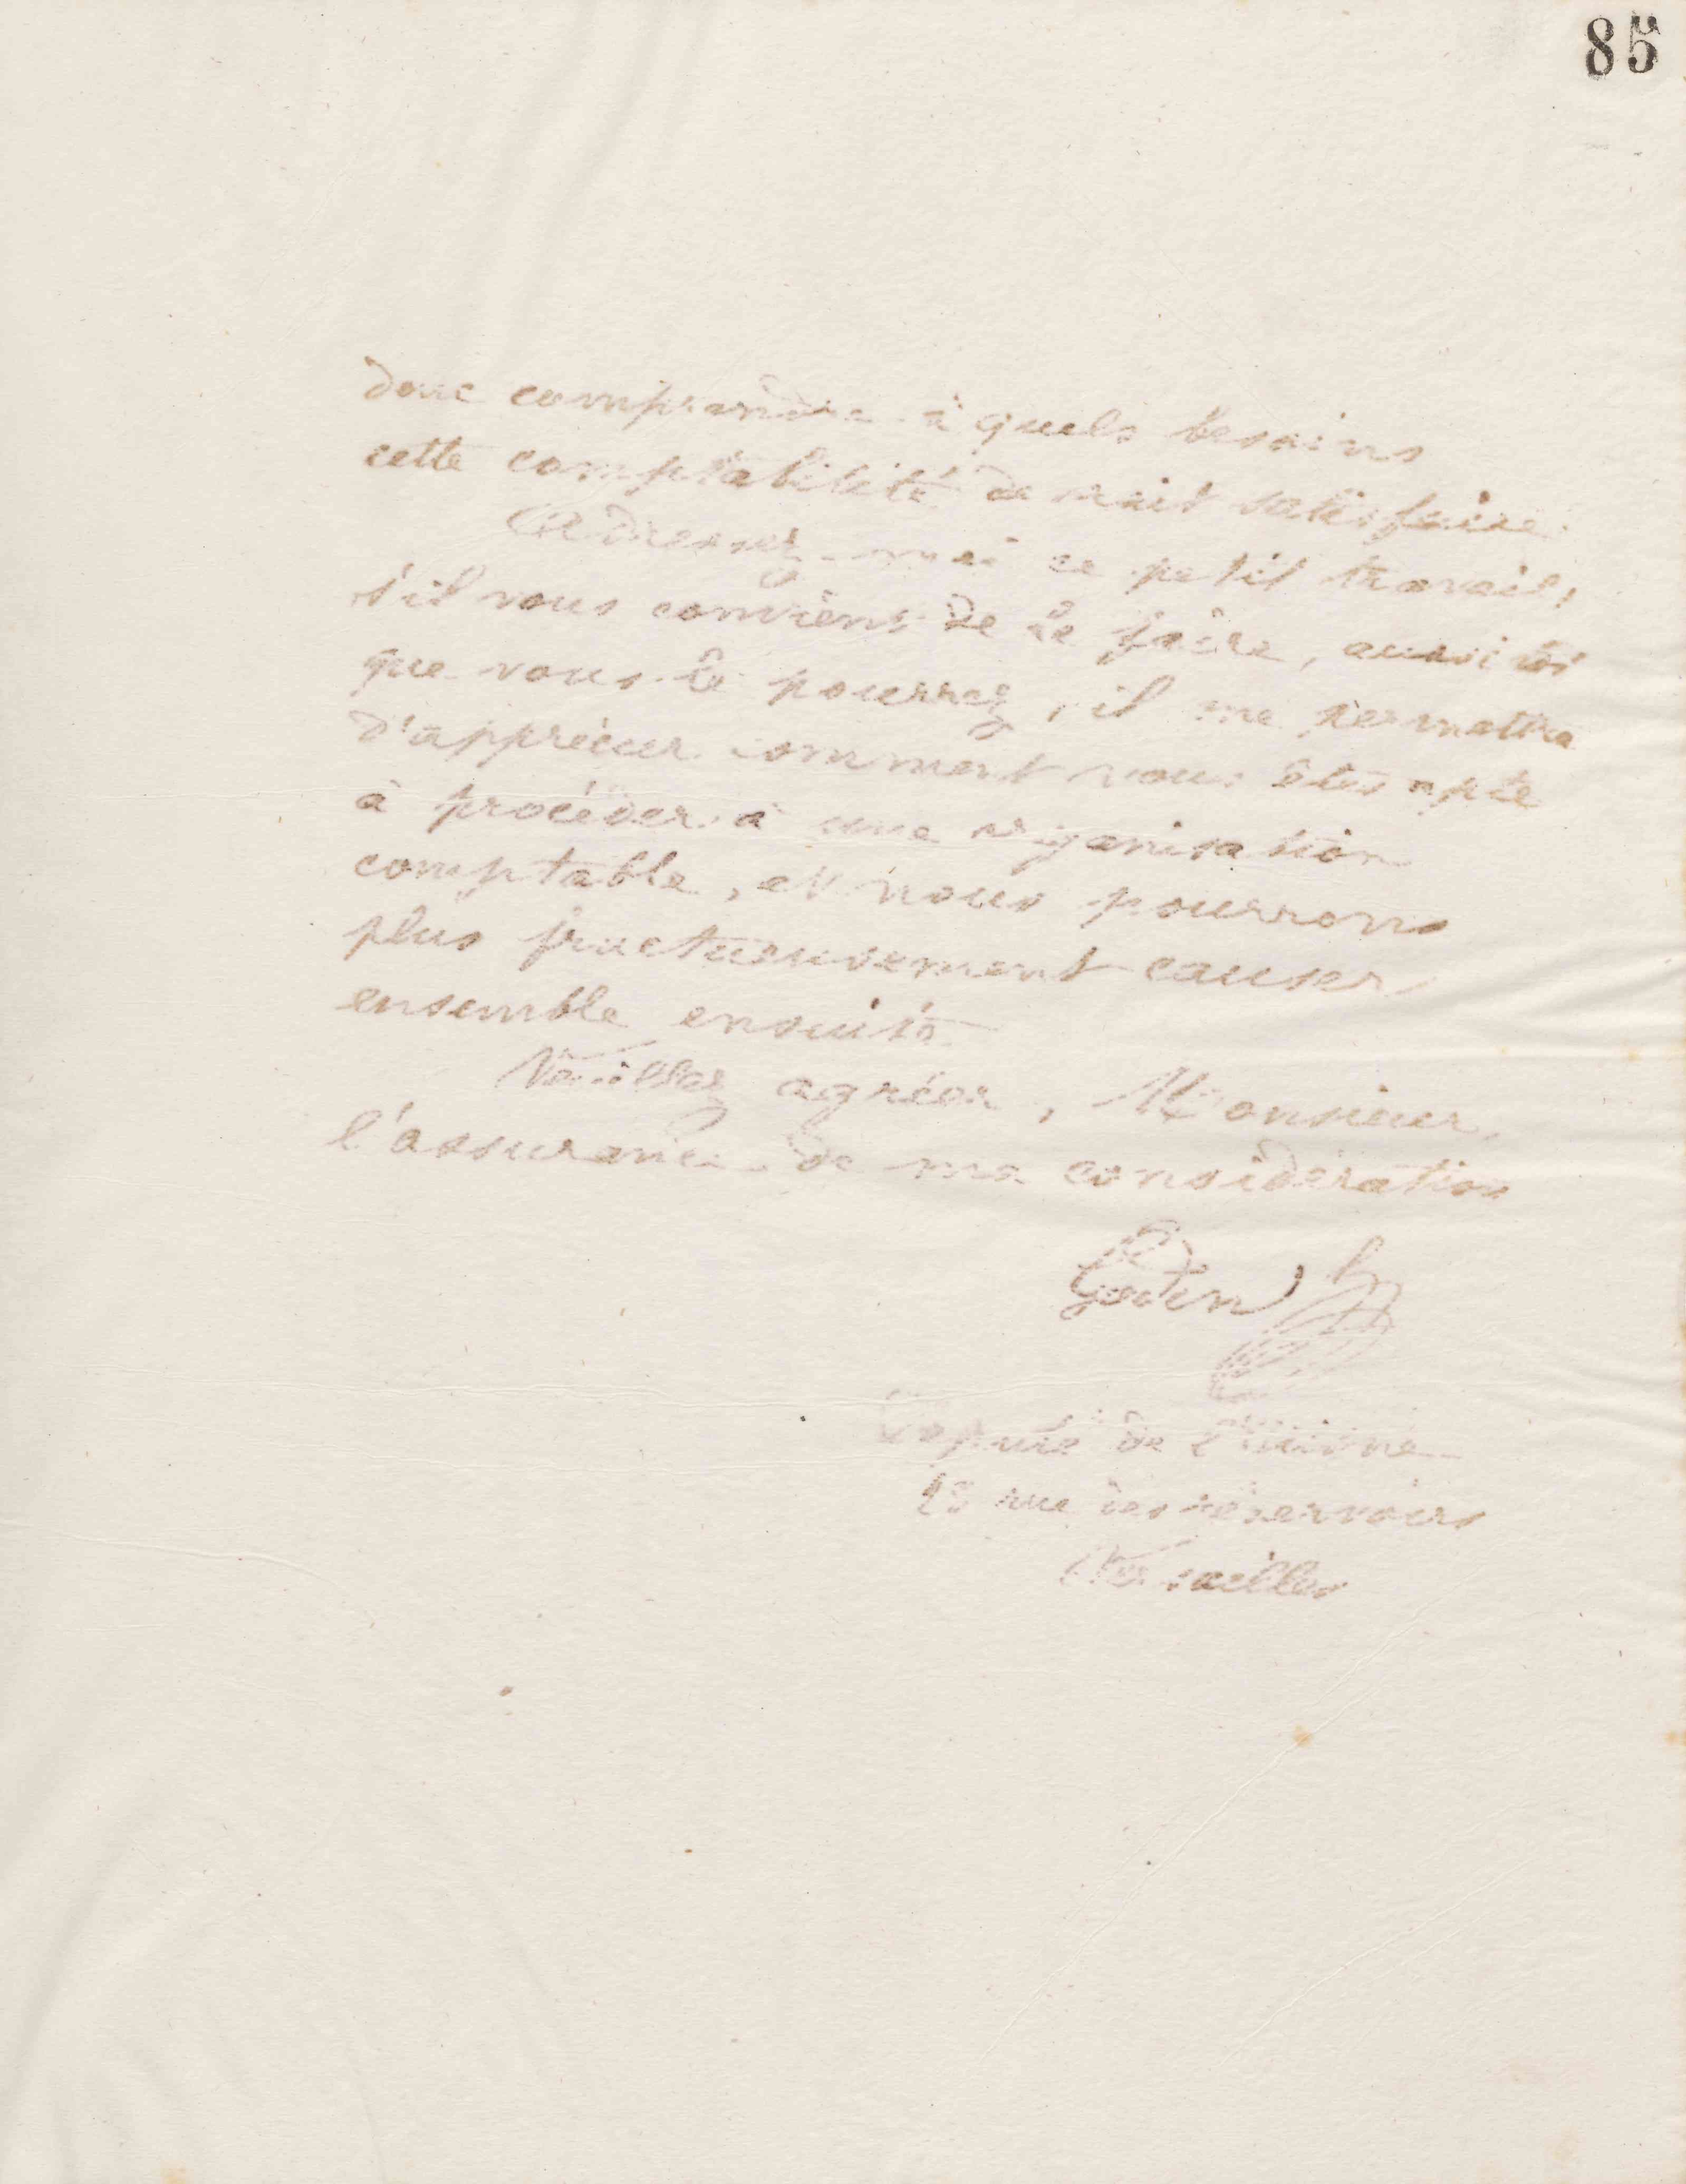 85
donc comprendre à quels besoins
cette comptabilité devrait satisfaire.
Adressez-moi ce petit travail,
s'il vous convient de le faire, aussitôt
que vous le pourrez, il me permettra
d'apprécier comment vous êtes apte
à procéder à une organisation
comptable, et nous pourrons
plus fructueusement causer
ensemble ensuite
Veuillez agréer, Monsieur,
l'assurance de ma considération
Godin
Député de l'Aisne
rue des réservoirs
Versailles